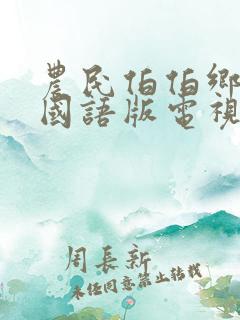 農民伯伯鄉
國語版電視
周長新
未經同意禁止轉載